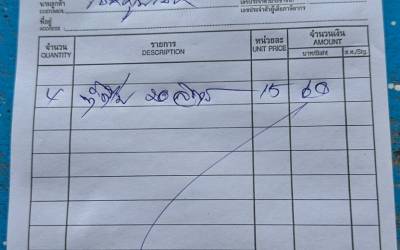 นามลูกค้า
CUSTOMER
ที่อยู่
ADDRESS
เลขประจำตัวผู้เสียภาษีอากร
จำนวน รายการ หน่วยละ จำนวนเงิน
QUANTITY DESCRIPTION UNIT PRICE AMOUNT
บาท/Baht ส.ต./Stg.
4 น้ำดื่ม 20 ลิตร 15 60